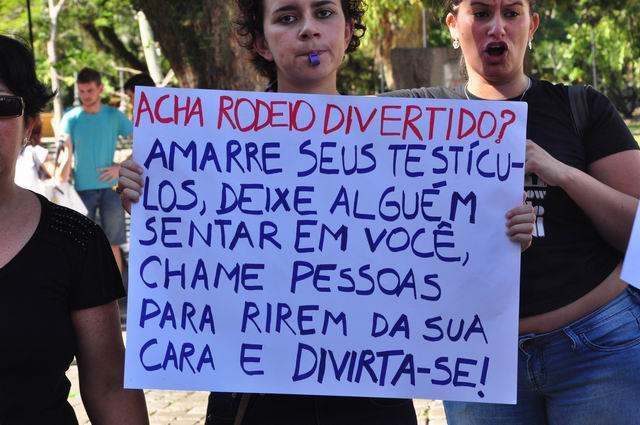 ACHA RODEIO DIVERTIDO?
AMARRE SEUS TESTÍCU-
LOS, DEIXE ALGUÉM
SENTAR EM VOCÊ,
CHAME PESSOAS
PARA RIREM DA SUA
CARA E DIVIRTA-SE!